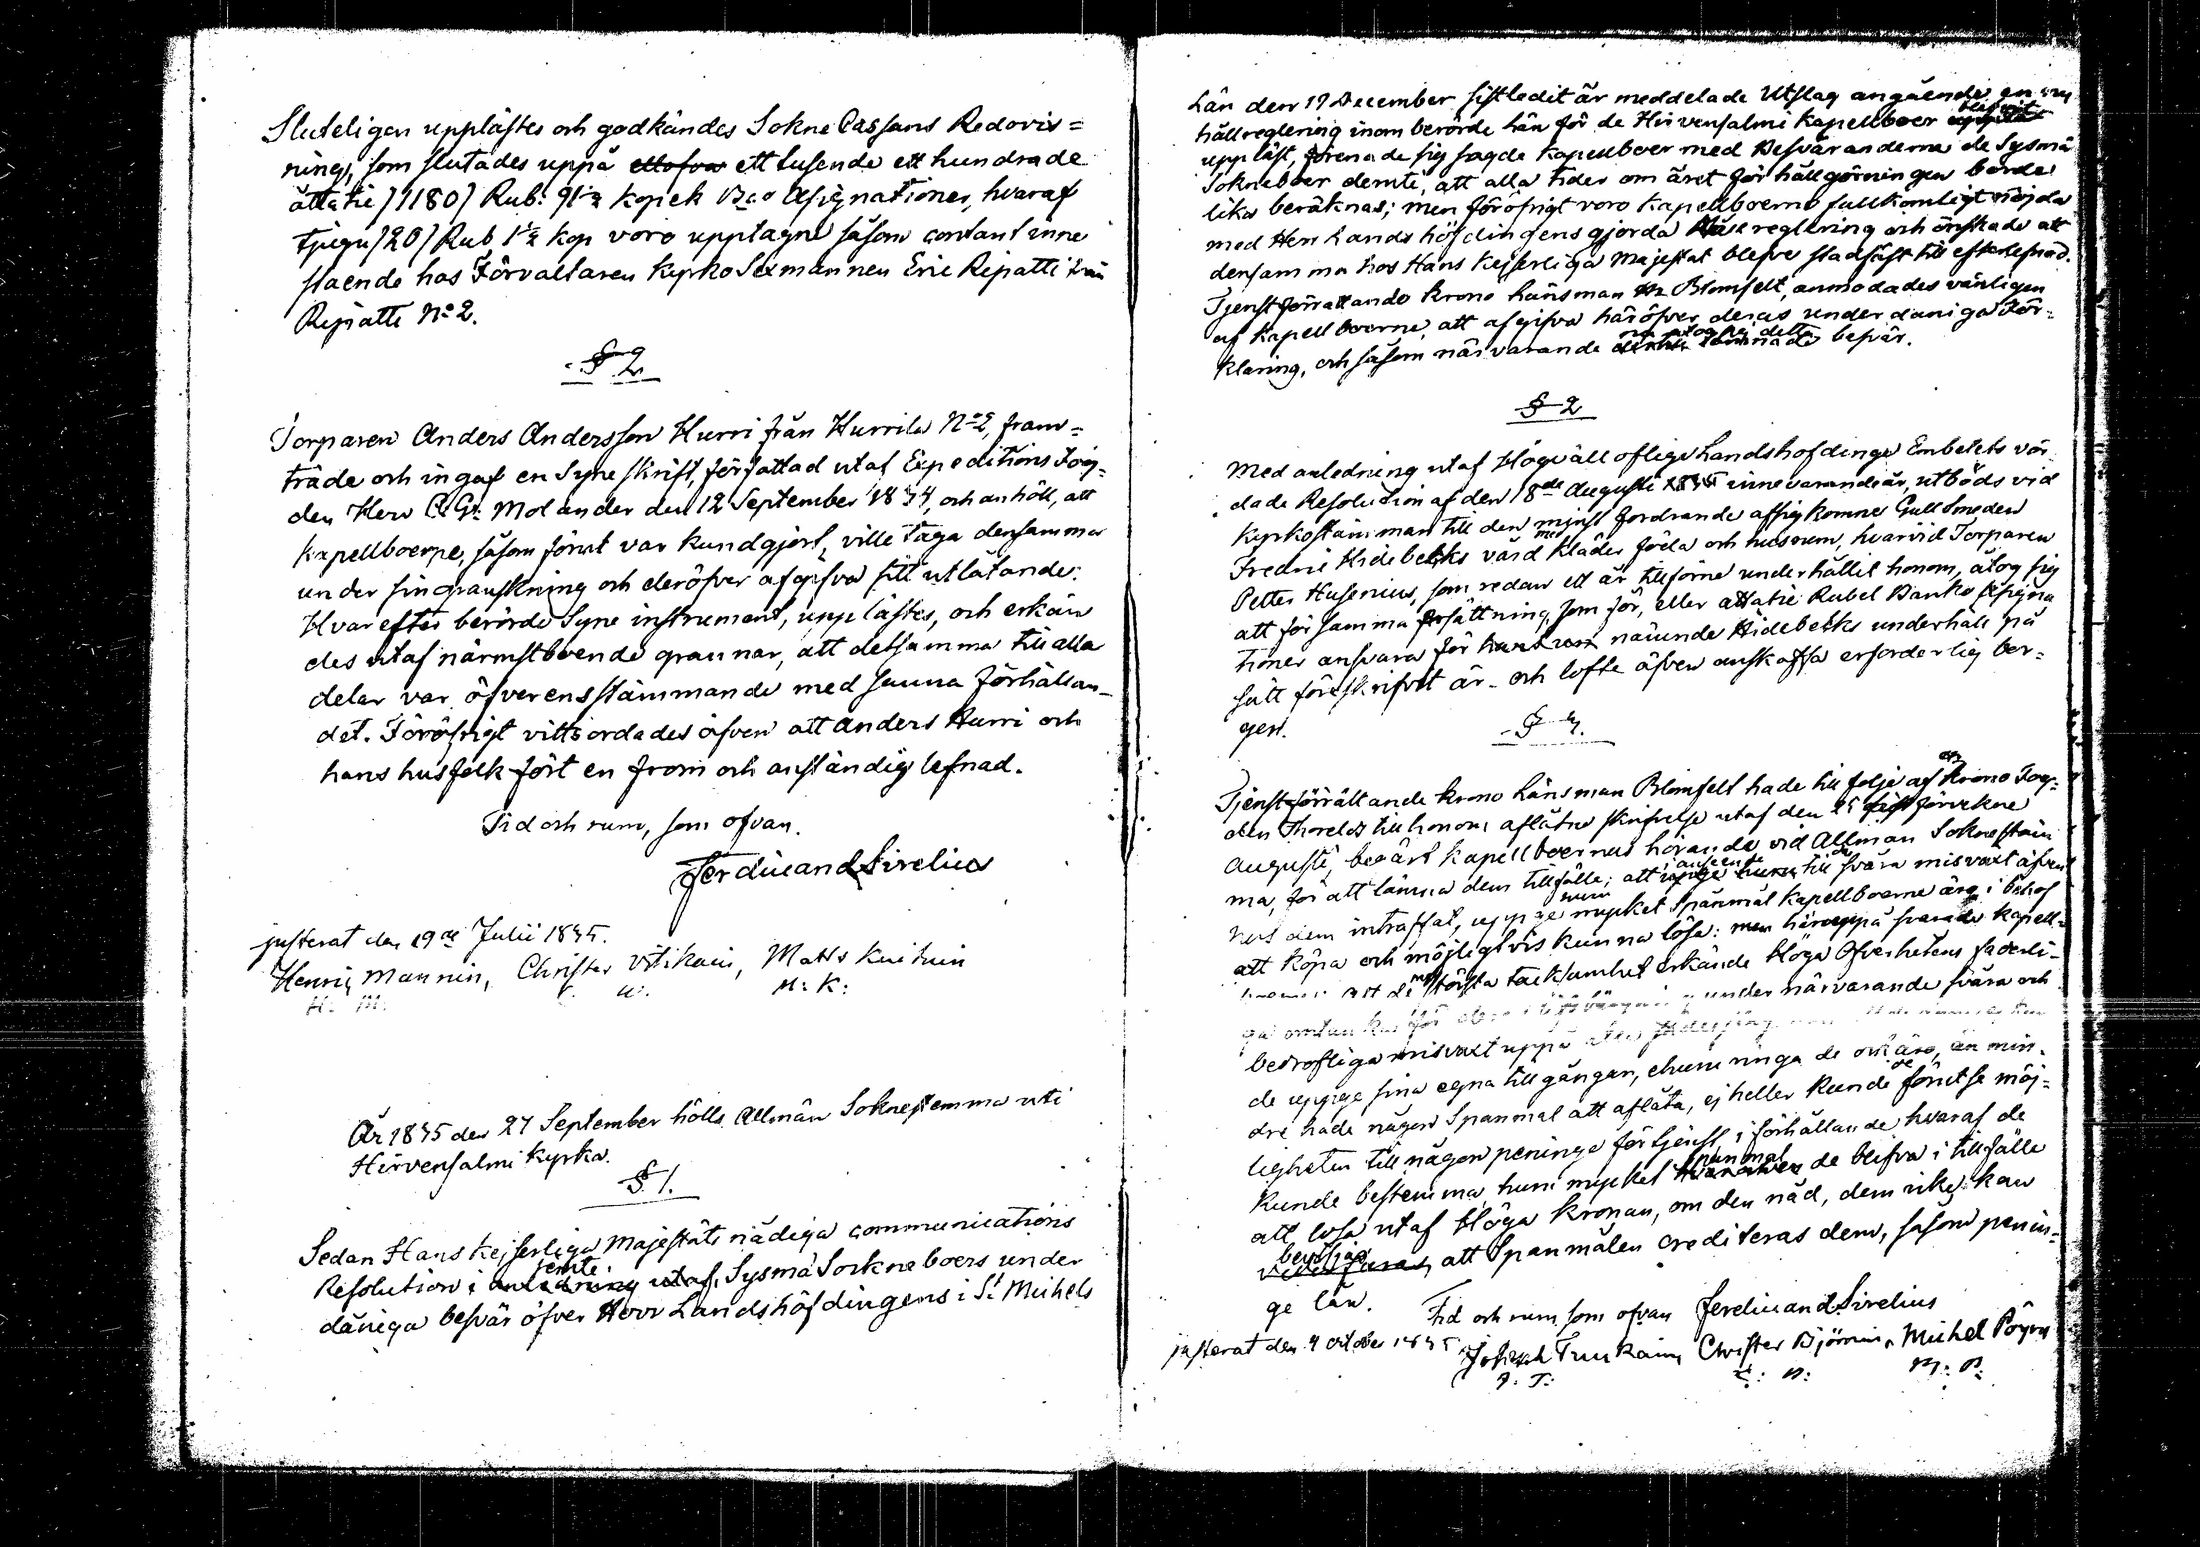 Sluteligen upplästes och godkändes Sokne Cassans Redovis=
ning, som slutades uppå ett tusende ett hundrade
åttatie /1180/ Rub: 91½ Kopek Bco Assignationer, hvaraf
tjugu /20/ Rub 1½ Kop voro upptagne såsom contant inne
stående hos Förvaltaren Kyrko Sexmannen Eric Ripatti från
Ripatti No 2.
§ 2
Torparen Anders Andersson Hurri från Hurrila No 2, fram=
trädde och ingaf en Syne Skrift, författad utaf Expeditions Fog=
den Herr C. G: Molander den 12 September 1844, och anhöll, att
kapellboerne, såsom förut var kundgjort, ville taga densamma
under sin granskning och deröfver afgifva sitt utlåtande.
Hvarefter berörde Syne instrument, upplästes, och erkän
des utaf närmstboende grannar, att detsamma till alla
delar var öfverensstämmande med sanna förhållan-
det. Föröfrigt vittsordades äfven att Anders Hurri och
hans husfolk fört en from och anständig lefnad.
Tid och rum, som ofvan.
Ferdinand Sirelius
justerat den 19de Julii 1845.
Henric Mannin, Christer Vitikain, Matts Kuituin
H: M: M: K:
År 1845 den 27 September hölls Allmän Soknestemma uti
Hirvensalmi Kyrka.
§ 1.
Sedan Hans Kejserliga Majestäts nådiga communications
Resolution i anledning utaf jemte Sysmä Sockneboers under
dåniga besvär öfver Herr Landshöfdingens i St Michels
Län den 17 December sistledit år meddelade Utslag angående en ny
hållreglering inom berörde Län för de Hirvensalmi Kapellboer blifvit
uppläst, förenade sig sagde Kapellboer med Besväranderne de Sysmä
Sockneboer deruti, att alla tider om året för hållgörningen borde
lika beräknas; men föröfrigt voro Kapellboerne fullkomligt nöjda
med Herr Lands höfdingens gjorda reglering och önskade att
densamma hos Hans Kejserliga Majestät blefve stadfäst till efterlefnad.
Tjenstförrättande Krono Länsman Blomfelt, anmodades vänligen
af Kapellboerne, att afgifva häröfver deras underdåniga För=
klaring, och såsom närvarande åtog sig detta besvär.
§ 2
Med anledning utaf Högvällofliga Landshöfdinge Embetets vör
dade Resolution af den 18de Augusti innevarande år, utböds vid
Kyrkostämman till den minst fordrande afsigkomne Gull Smeden
Fredric Hidebecks vård med kläder föda och husrum, hvarvid Torparen
Petter Husenius, som redan ett år tillförne underhållit honom, åtog sig
att för samma ersättning, som för, eller åttatie Rubel Banko Assigna
tioner ansvara för nämnde Hidebecks underhåll på
sätt föreskrifvet är och lofte äfven anskaffa erforderlig bor=
gen.
§ 3.
Tjenstförrättande Krono Länsman Blomfelt hade till följe af Krono Fog=
den Thorelds till honom aflåtne skrifvelse utaf den 25 förvekne
Augusti, begärt Kapellboernes hörande vid Allmän Sokne stäm
ma, för att lämna dem tillfälle, att i anseende till svåra misvext äfven
hos dem inträffat, uppge huru mycket Spanmål Kapellboerne äro i behof
att köpa och möjligtvis kunna lösa: men häruppå svarade Kapell=
boerne: att de med största tacksamhet erkände Höga Öfverhetens faderli-
ga omtanka för under närvarande svåra och
bedröfliga misvext uppå
de uppge sina egna tillgångar, ehuru ringa de ock äro, än min-
dre hade någon Spanmål att aflåta, ej heller kunde de förutse möj=
ligheten till någon peninge förtjenst, i förhållande hvaraf de
kunde bestemma huru mycket spanmål de blifva i tillfälle
att lösa utaf Höga Kronan, om den nåd, dem icke kan
beviljas att Spanmålen crediteras dem, såsom penin=
ge lån. Tid och rum som ofvan Ferdinand Sirelius
justerat den 4 October 1845. Joseph Tuukain, Christer Björnin, Michel Pöyry
J: T: C: B: M: P: